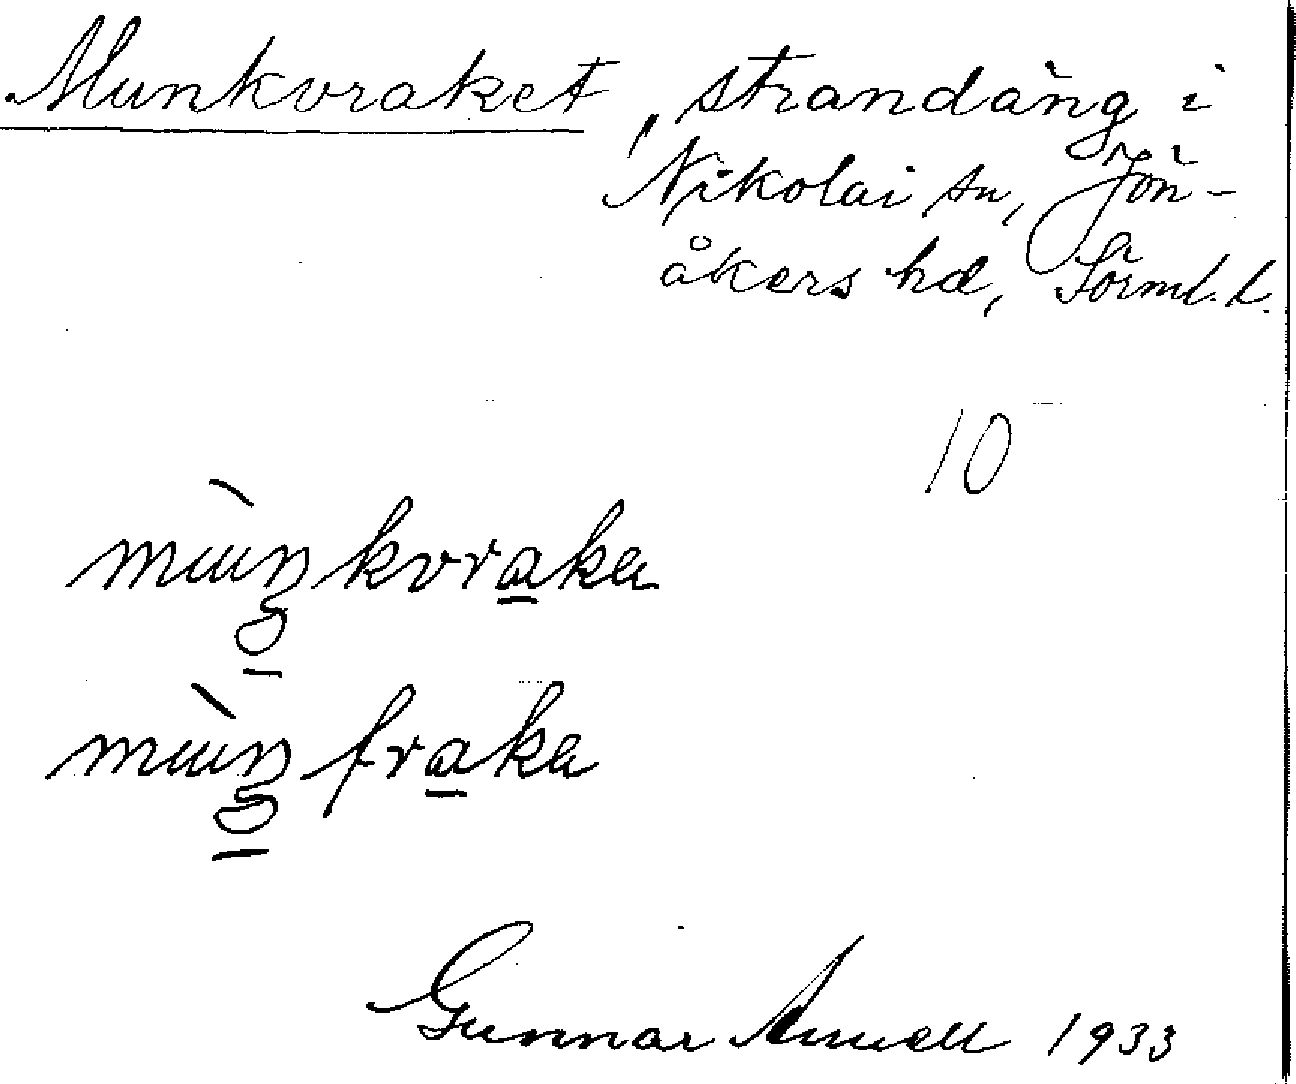 Munkvraket, strandäng i
Nikolai sn, Jön-
åkers hd, Sörml. l.
10
mùŋkvraka
mùŋfraka
Gunnar Annell 1933